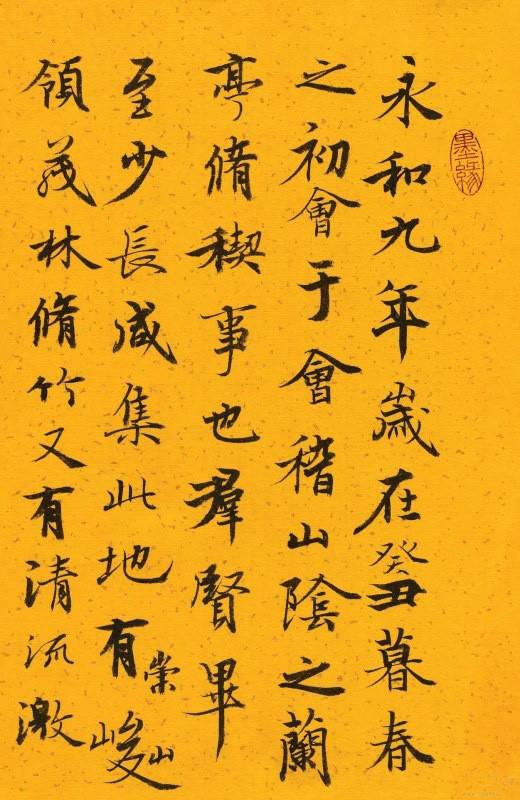 永和九年歲在癸丑暮春
之初會于會稽山陰之蘭
亭脩稧事也羣賢畢
至少長咸集此地有崇山峻
領茂林脩竹又有清流激